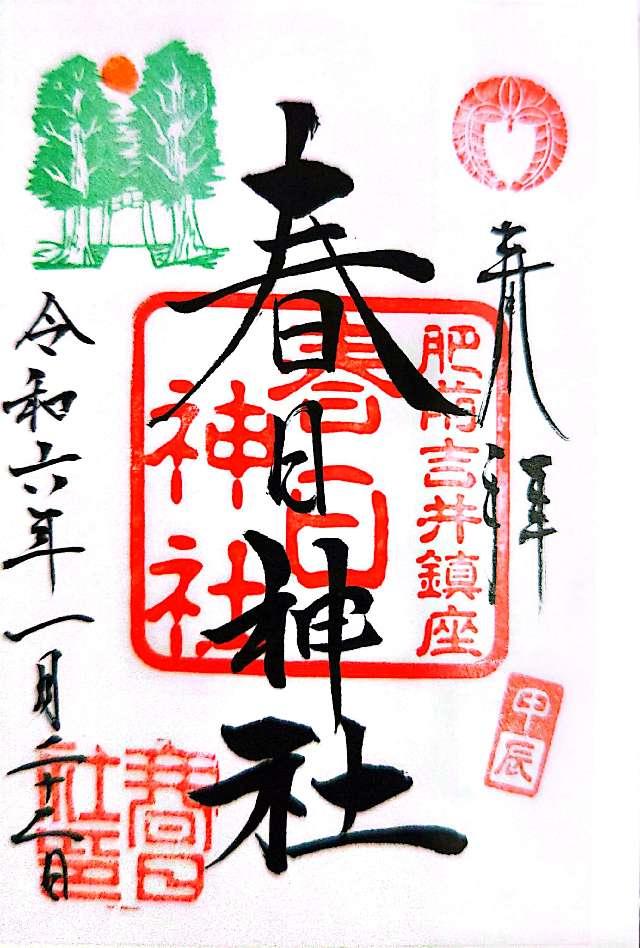 奉拝
甲辰
肥前吉井鎮座
春日
神社
春日神社
令和六年一月二十三日
春日
社印